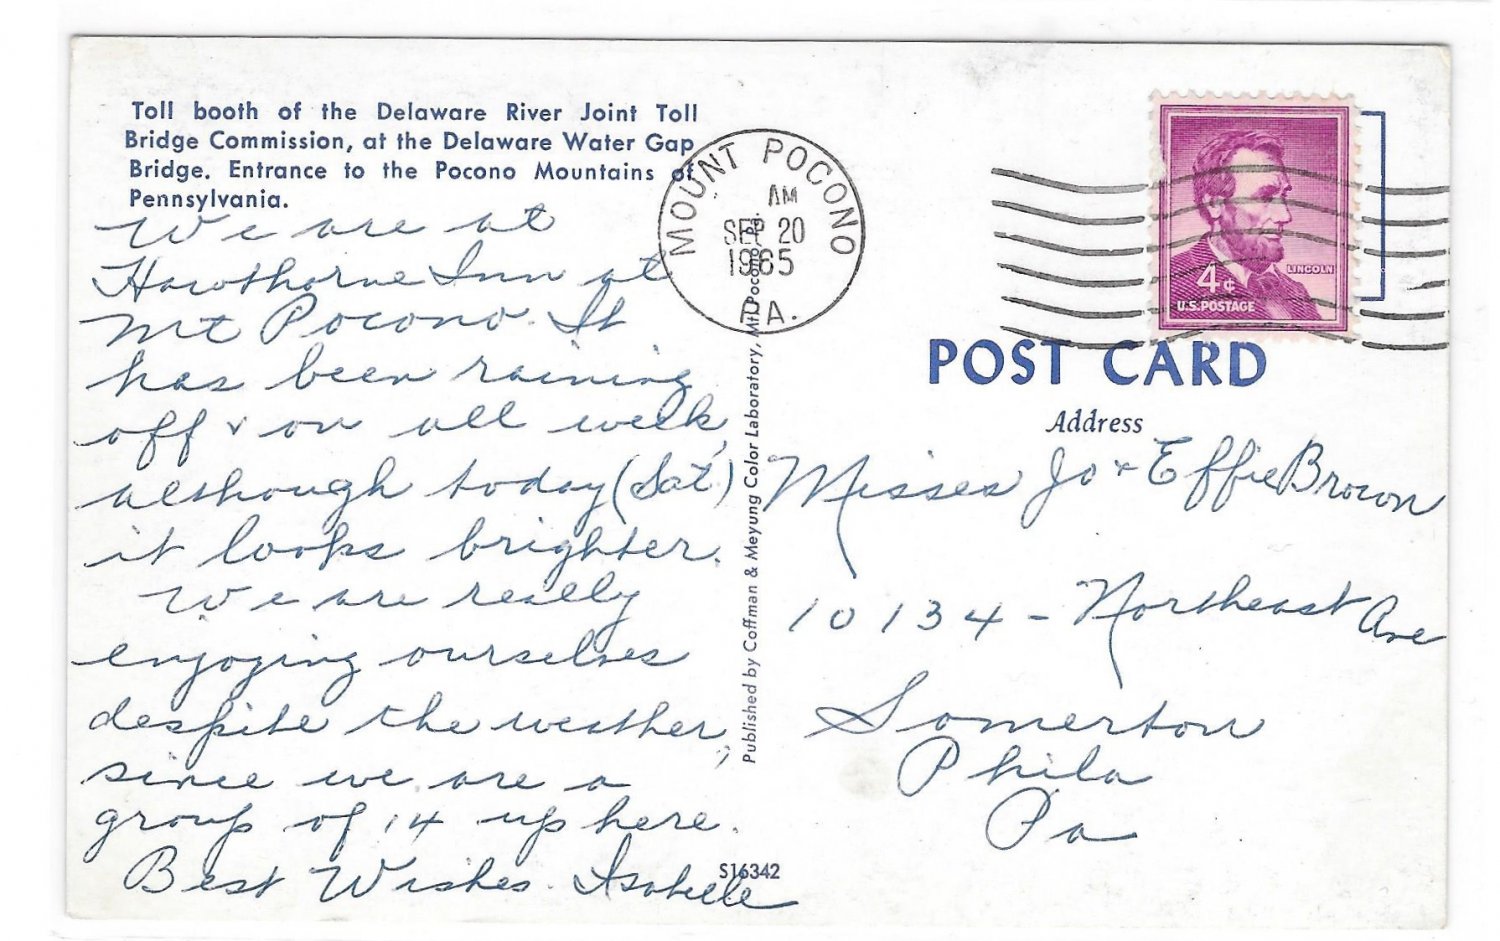 Toll booth of the Delaware River Joint Toll
Bridge Commission, at the Delaware Water Gap
Bridge. Entrance to the Pocono Mountains of
Pennsylvania.
We are at
Hawthorne Inn at
Mt Pocono. It
has been raining
off & on all week,
although today (Sat)
it looks brighter.
We are really
enjoying ourselves
despite the weather,
since we are a
group of 14 up here.
Best Wishes. Isabelle
S16342
Published by Coffman & Meyung Color Laboratory, Mt. Pocono, Pa.
MOUNT POCONO
AM
SEP 20
1965
PA.
LINCOLN
4¢
U.S. POSTAGE
POST CARD
Address
Misses Jo & Effie Brown
10134 - Northeast Ave
Somerton
Phila
Pa